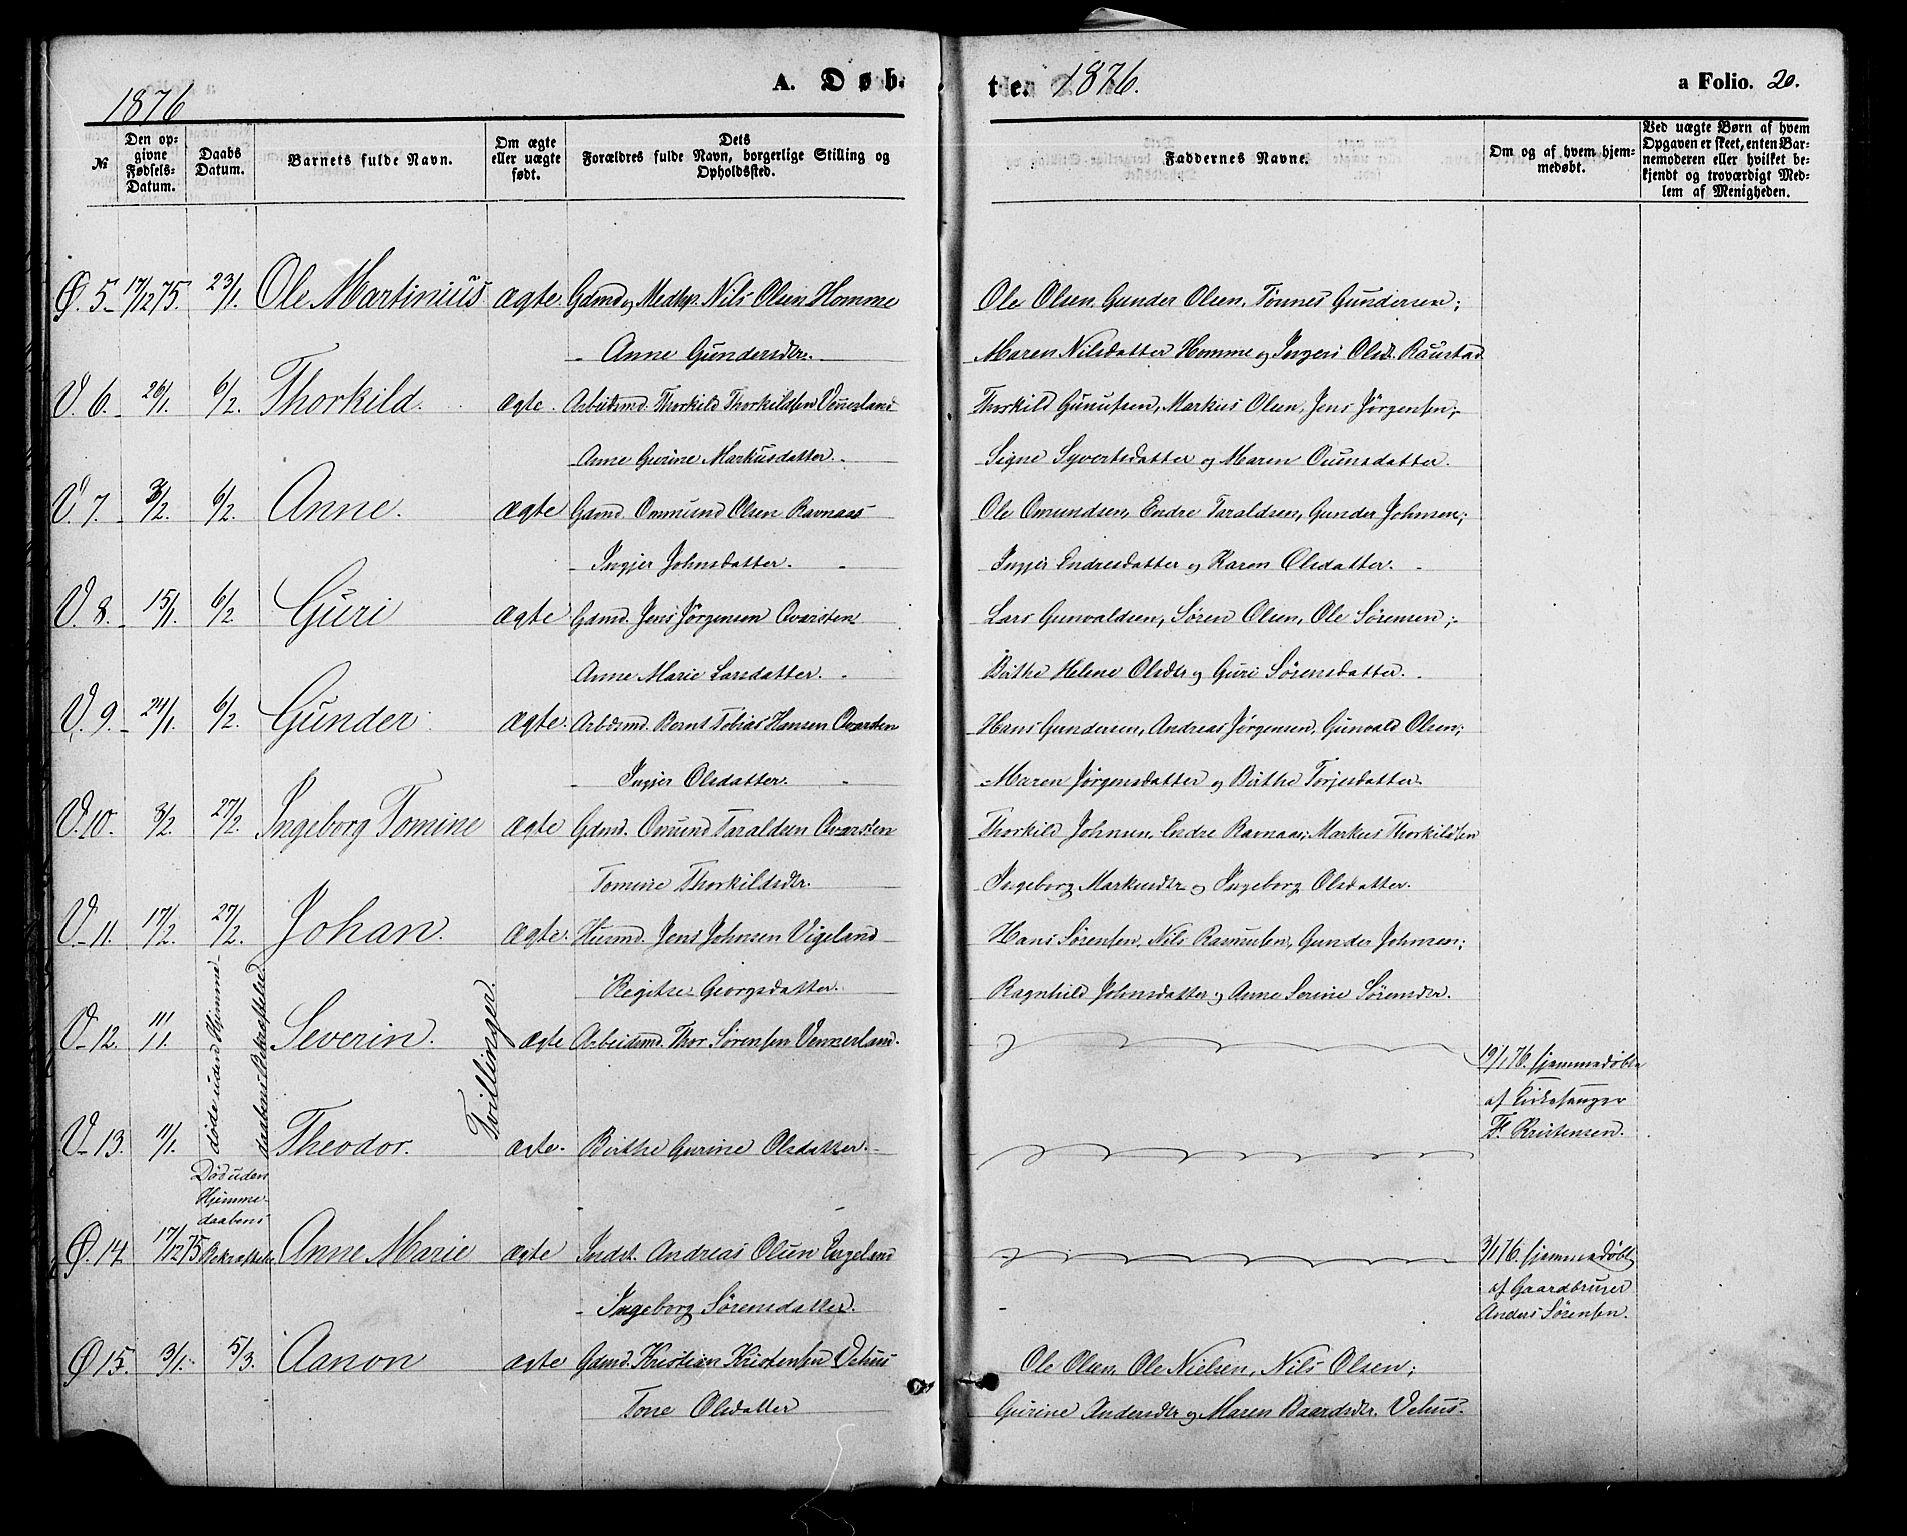 1876
A. Døb-
te. 1876.
a Folio. 20.
№
Den opgivne Fødsels-Datum.
Daabs Datum.
Barnets fulde Navn.
Om ægte eller uægte født.
Dets Forældres fulde Navn, borgerlige Stilling og Opholdssted.
Faddernes Navne.
Om og af hvem hjemmedøbt.
Ved uægte Børn af hvem Opgaven er skeet, enten Barnemoderen eller hvilket bekjendt og troværdigt Medlem af Menigheden.
Ø. 5. 17/12 75. 23/1. Ole Martinius ægte. Gdmd og Medhp. Nils Olsen Homme Ole Olsen, Gunder Olsen, Tønnes Gundersen;
Anne Gundersdtr. Maren Nilsdatter Homme og Ingeri Olsd. Raustad
V. 6. 26/1. 6/2. Thorkild. ægte. Arbeidsmd. Thorkild Thorkildsen Vennerland Thorkild Gunufsen, Markus Olsen, Jens Jörgensen;
Anne Gurine Markusdatter. Signe Syvertsdatter og Maren Oumsdatter.
V. 7. 3/2. 6/2. Anne. ægte Gamd. Ommund Olsen Ravnaas Ole Omundsen, Endre Taraldsen, Gunder Johnsen;
Ingjer Johnsdatter. Ingjer Endresdatter og Karen Olsdatter.
V. 8. 15/1. 6/2. Guri ægte Gamd. Jens Jörgensen Qvarsten Lars Gunvaldsen, Sören Olsen, Ole Sörensen;
Anne Marie Larsdatter. Birthe Helene Olsdtr og Guri Sörensdatter.
V. 9. 24/1. 6/2. Gunder ægte. Arbdsmd. Bernt Tobias Hansen Qvarsten Hans Gundersen, Andreas Jörgensen, Gunvald Olsen;
Ingjer Olsdatter. Maren Jörgensdatter og Birthe Torjesdatter.
V. 10. 3/2. 27/2. Ingeborg Tomine ægte Gdmd. Omund Taraldsen Qvarsten Thorkild Johnsen, Endre Ravnaas, Markus Thorkildsen
Tomine Thorkildsdtr. Ingeborg Markusdtr og Ingeborg Olsdatter.
V. 11. 17/2. 27/2. Johan. ægte. Husmd. Jens Johnsen Vigeland Hans Sörensen, Nils Rasmusen, Gunder Johnsen;
Regitse Georgsdatter. Ragnhild Johnsdatter og Anne Serine Sörensdtr.
V. 12. 11/1. døde uden Hjemmedaabens Bekræftelse Severin. Tvillinger. ægte Arbeidsmd. Thor Sörensen Vennerland. 19/1 76. hjemmedøbte
af Kirkesanger
V. 13. 11/1. Theodor. ægte. Birthe Gurine Olsdatter. F. Kristensen.
Død uden
Hjemme-
daabens
Ø. 14. 17/12 75 Bekræftelse Anne Marie ægte Indst. Andreas Olsen Engeland 3/1 76. hjemmedøbt
af Gaardbruger
Ingeborg Sörensdatter. Anders Sörensen.
Ø 15. 3/1. 5/3. Aanon ægte Gdmd. Kristian Kristensen Vehus Ole Olsen, Ole Nielsen, Nils Olsen;
Tone Olsdatter Gurine Andersdtr og Maren Baardsdtr. Vehus.